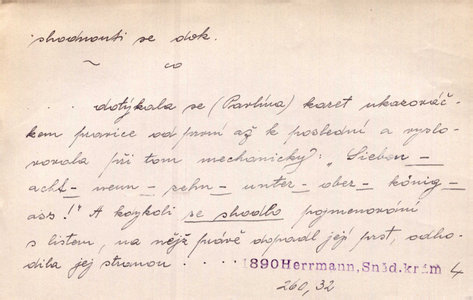 shodnouti se dok.
~ co
. . . dotýkala se (Pavlína) karet ukazováč-
kem pravice od první až k poslední a vyslo-
vovala při tom mechanicky: „Sieben —
acht — neun — zehn — unter — ober — könig —
ass!" A kdykoli se shodlo pojmenování
s listem, na nějž právě dopadl její prst, odho-
dila jej stranou . . . . 1890 Herrmann, Sněd. krám 4
260, 32